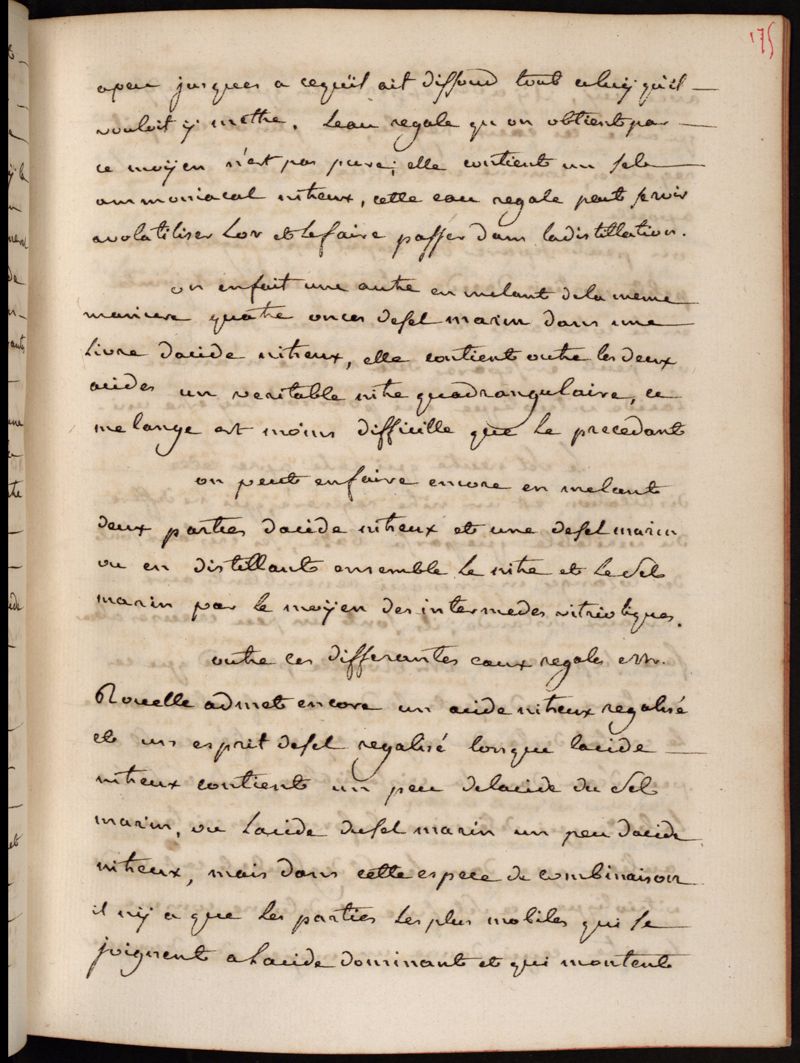 175
apeu jusques a cequ'il ait dissoud tout celuy qu'il
vouloit y mettre. Leau regale qu on obtient par
ce moÿen n'est pas pure; elle contient un sele
ammoniacal nitreux, cette eau regale peut servir
avolatiliser Lor et lefaire passer dans ladistillation.
on enfait une autre en melant dela meme
maniere quatre onces desel marin dans une
Livre dacide nitreux, elle contient outre les deux
acides un veritable nitre quadrangulaire, ce
melange est moins difficille que le precedant
on peut enfaire encore en melant
deux parties dacide nitreux et une desel marin
ou en distillant ensemble le nitre et le sel
marin par le moÿen des intermedes vitrioliques.
outre ces differantes eaux regales
Rouelle admet encore un acide nitreux regalisé
et un esprit desel regalisé lorsque lacide
nitreux contient un peu delacide du sel
marin, ou Lacide dusel marin un peu dacide
nitreux, mais dans cette espece de combinaison
il nÿ a que les parties les plus mobiles qui se
joignent a Lacide dominant et qui montent